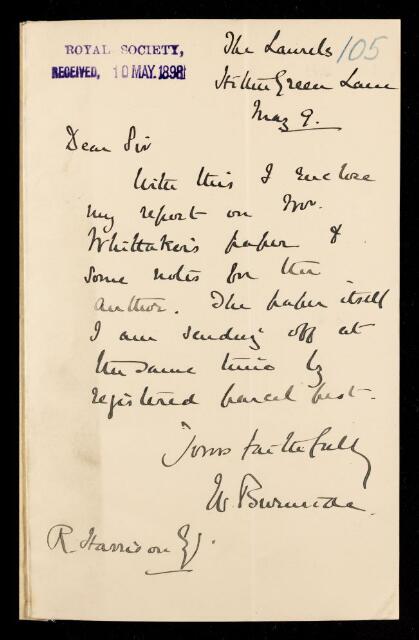 ROYAL SOCIETY,
RECEIVED, 10 MAY. 1898
105
The Laurels
Hither Green Lane
May 9.
Dear Sir
With this I enclose
my report on
Whittaker's paper &
some notes for the
author. The paper itself
I am sending off at
the same time by
registered parcel post.
Yours faithfully
W. Burnside.
R. Harrison Esq.